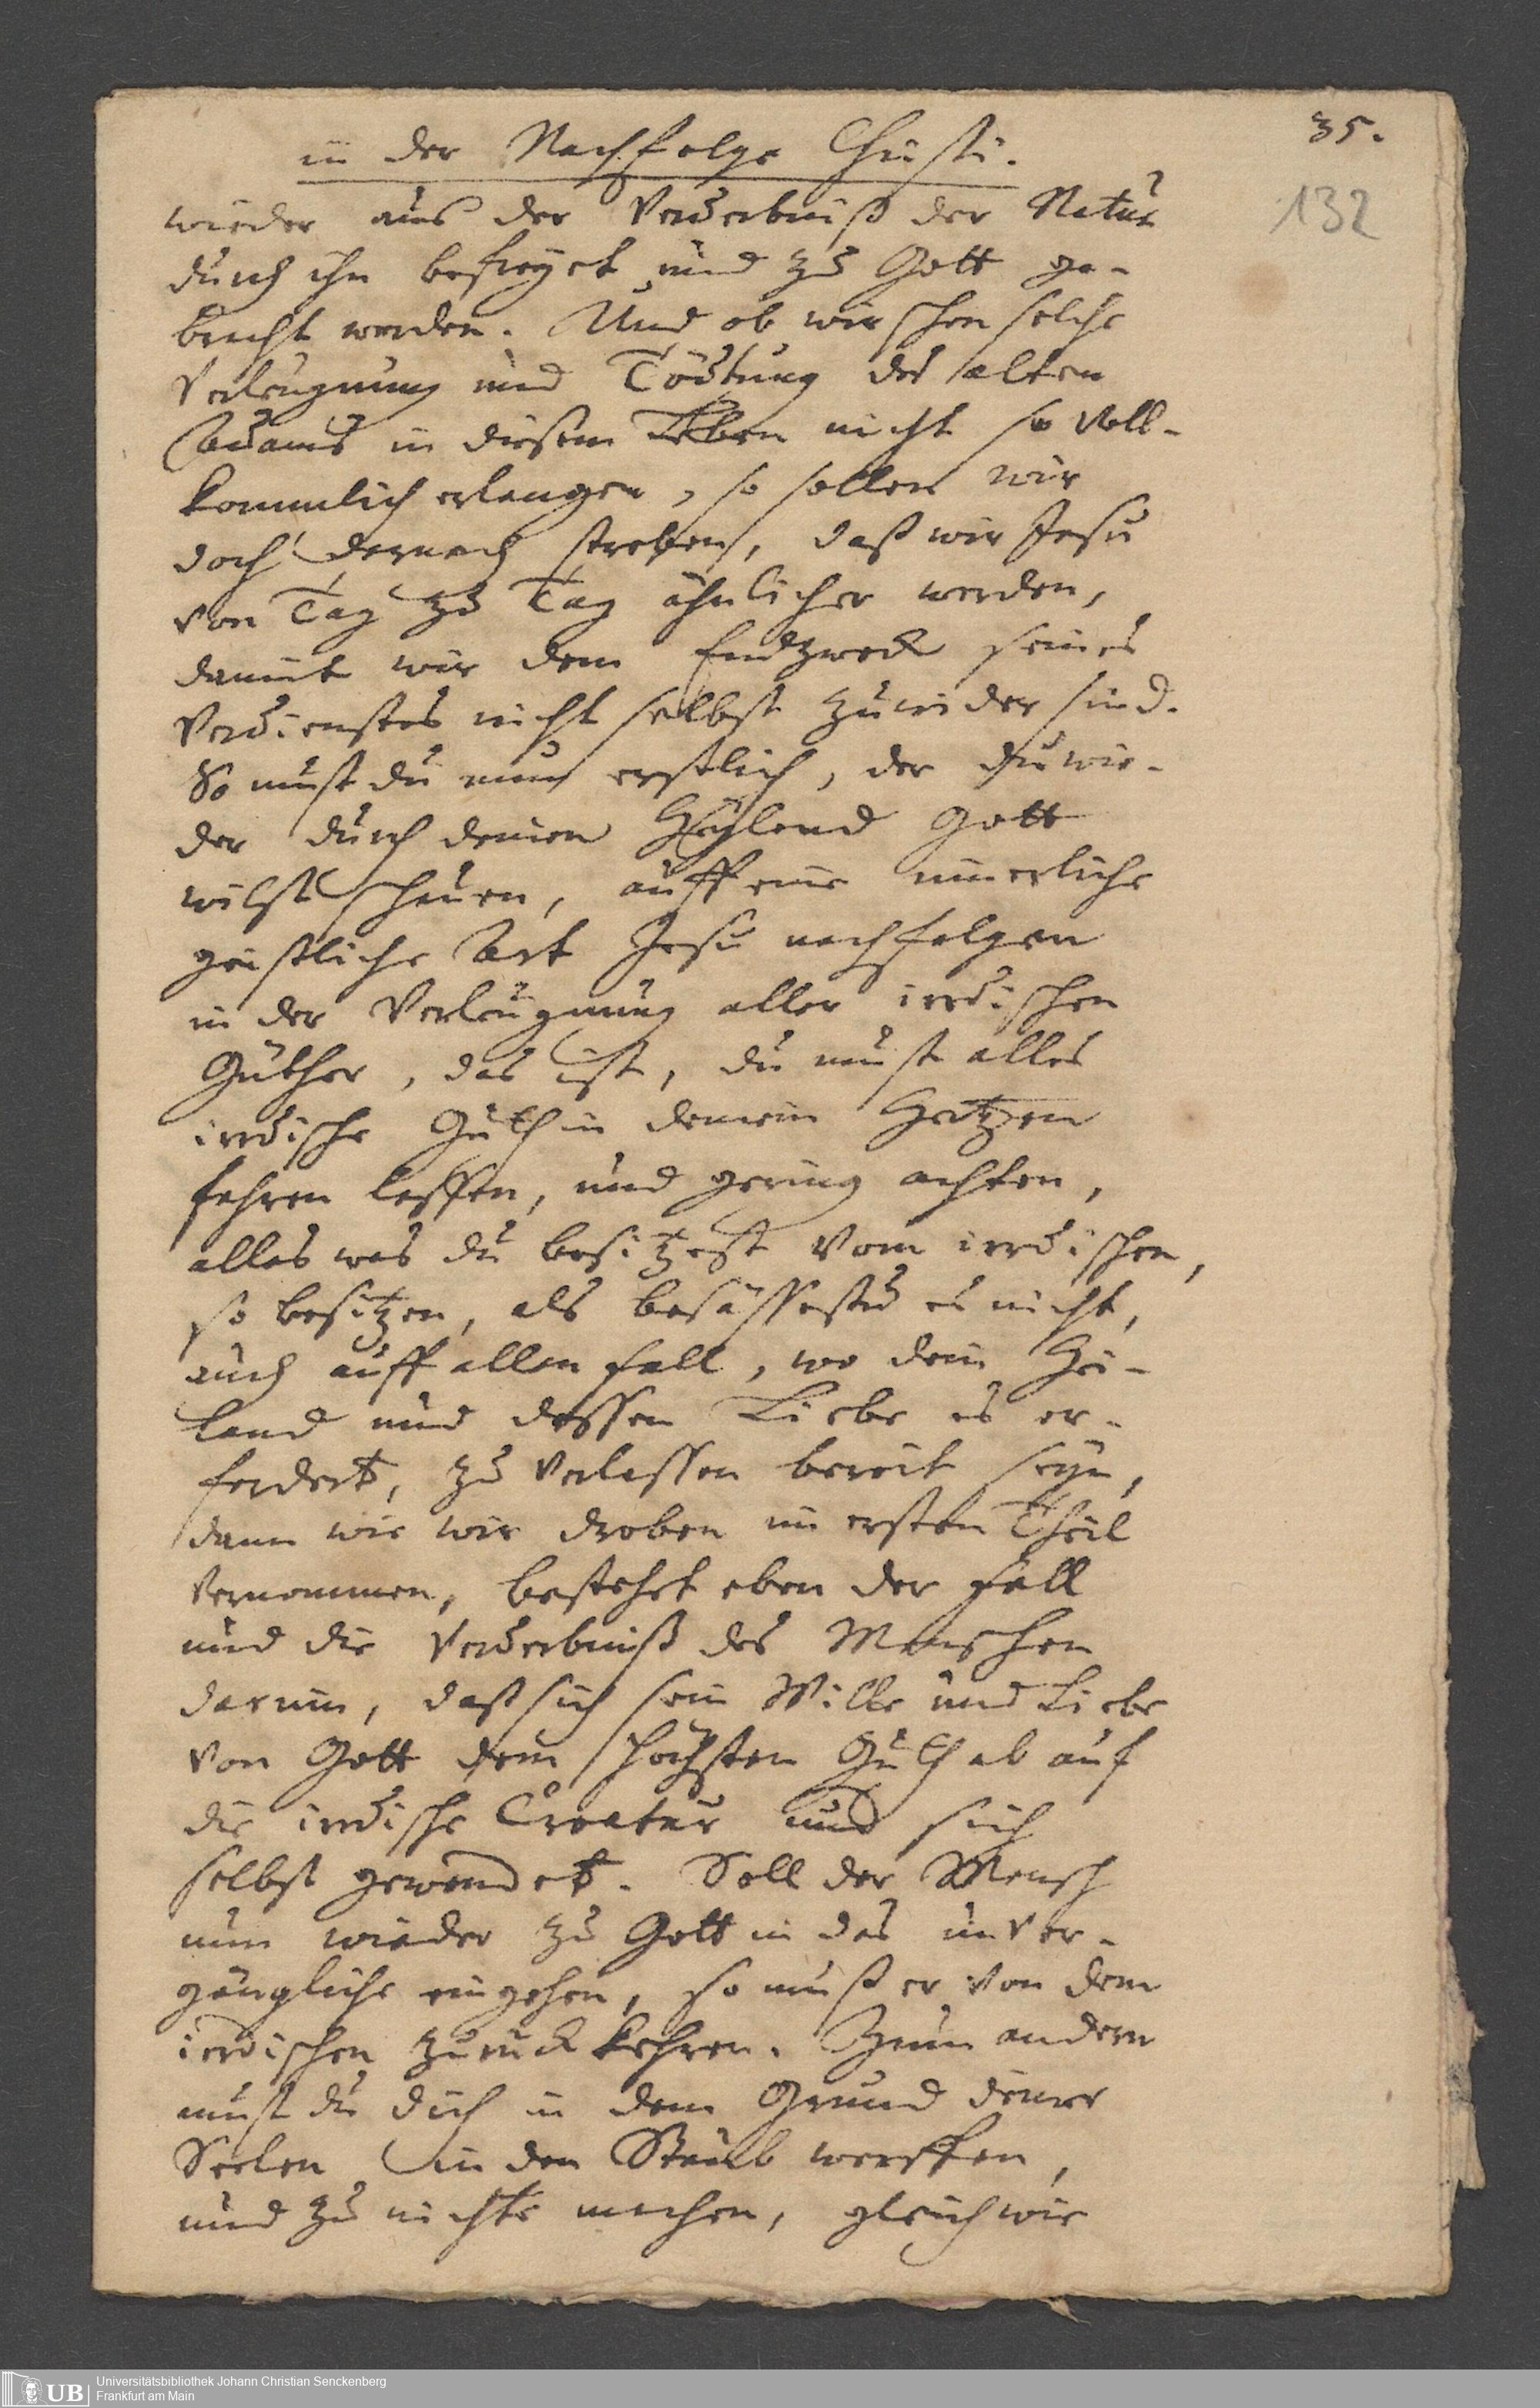 in der Nachfolge Christi.
35.
wieder aus der Verderbniß der Natur
132
durch ihn befreyet und zu Gott ge-
bracht werden. Und ob wir schon solche
Verleugnung und Tödtung des alten
Adams in diesem Leben nicht so voll-
kommlich erlangen, so sollen wir
doch darnach streben, daß wir Jesu
von Tag zu Tag ähnlicher werden,
damit wir dem Endzweck seines
Verdienstes nicht selbst zuwider sind.
So must du nun erstlich, der du wie-
der durch deinen Heyland Gott
wilst schauen, auff eine innerliche
geistliche Art Jesu nachfolgen
in der Verleugnung aller irrdischen
Güther, das ist, du must alles
irrdische Guth in deinem Hertzen
fahren lassen, und gering achten,
alles was du besitzest vom irrdischen,
so besitzen, als besässestu es nicht,
auch auff allen fall, wo dein Hei-
land und dessen Liebe es er-
fordert, zu verlassen bereit seyn,
dann wie wir droben im ersten Theil
vernommen, bestehet eben der fall
und die Verderbniß des Menschen
darinn, daß sich sein Wille und Liebe
von Gott dem höchsten Guth ab auf
die irrdische Creatur und sich
selbst gewendet. Soll der Mensch
nun wieder zu Gott in das unver-
gängliche eingehen, so muß er von dem
irrdischen zuruck kehren. Zum andern
must du dich in dem Grund deiner
Seelen in den Staub werffen,
und zu nichte machen, gleich wie
UB
Universitätsbibliothek Johann Christian Senckenberg
Frankfurt am Main